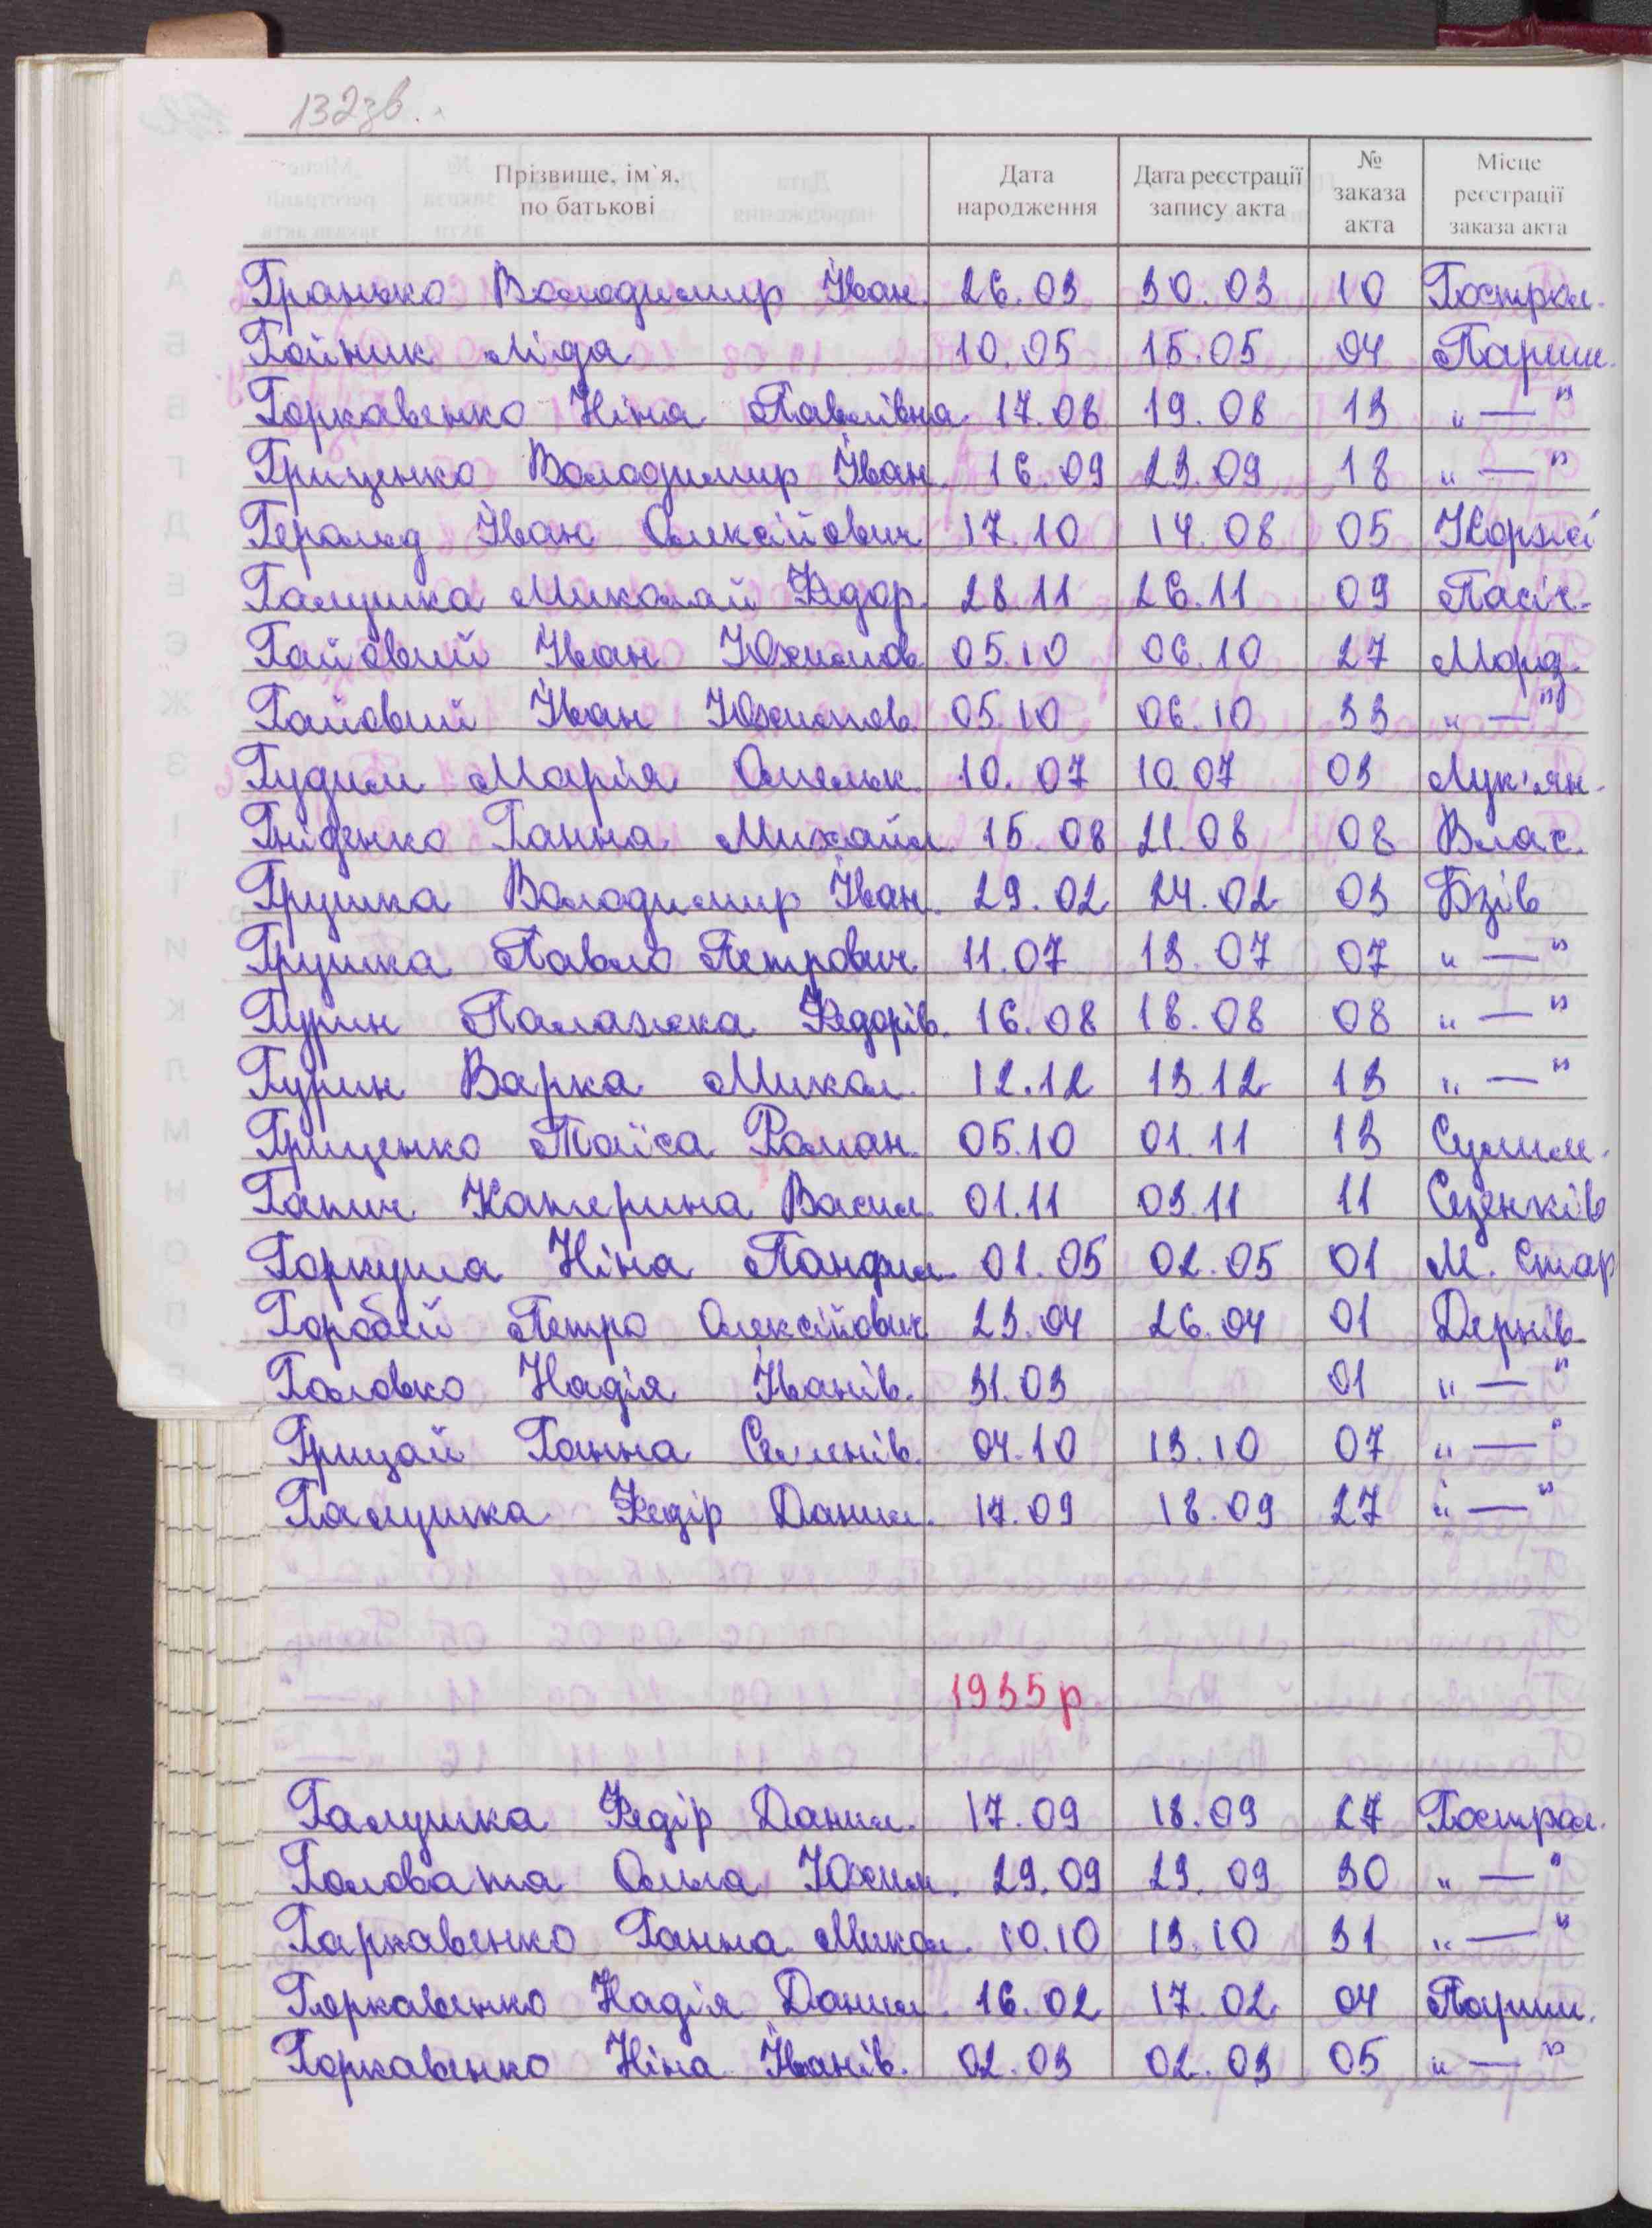 132зв.
Прізвище, ім`я, по батькові Дата народження Дата реєстрації запису акта № заказа акта Місце реєстрації заказа акта
Гранько Володимир Іван. 26.03 30.03 10 Гострол.
Гойник Ліда 10.05 15.05 04 Париш.
Горкавенко Ніна Павлівна 17.08 19.08 13 "—"
Гриценко Володимир Іван. 16.09 23.09 18 "—"
Геролед Іван Олексійович 17.10 14.08 05 Коржі
Галушка Миколай Федор. 28.11 26.11 09 Пасіч.
Гайовий Іван Юхимов. 05.10 06.10 27 Морд.
Гайовий Іван Юхимов. 05.10 06.10 33 "—"
Гудим Марія Омельк. 10.07 10.07 03 Лук'ян.
Гніденко Ганна Михайл. 15.08 21.08 08 Влас.
Грушка Володимир Іван. 23.02 24.02 03 Бзів
Грушка Павло Петрович 11.07 13.07 07 "—"
Гурин Палажка Федорів. 16.08 18.08 08 "—"
Гурин Варка Микол. 12.12 13.12 13 "—"
Гриценко Таїса Роман. 05.10 01.11 13 Сулим.
Гапич Катерина Васил. 01.11 03.11 11 Сезенків
Горкуша Ніна Панфил. 01.05 02.05 01 М. Стар
Горобей Петро Олексійович 23.04 26.04 01 Дернів.
Головко Надія Іванів. 31.03 01 "—"
Грицай Ганна Семенів. 04.10 13.10 07 "—"
Галушка Федір Данил. 17.09 18.09 27 "—"
1935р
Галушка Федір Данил. 17.09 18.09 27 Гострол.
Головата Ольга Юхим. 29.09 29.09 30 "—"
Гаркавенко Ганна Микол. 10.10 13.10 31 "—"
Горкавенко Надія Данил. 16.02 17.02 04 Париш.
Горкавенко Ніна Іванів. 02.03 02.03 05 "—"